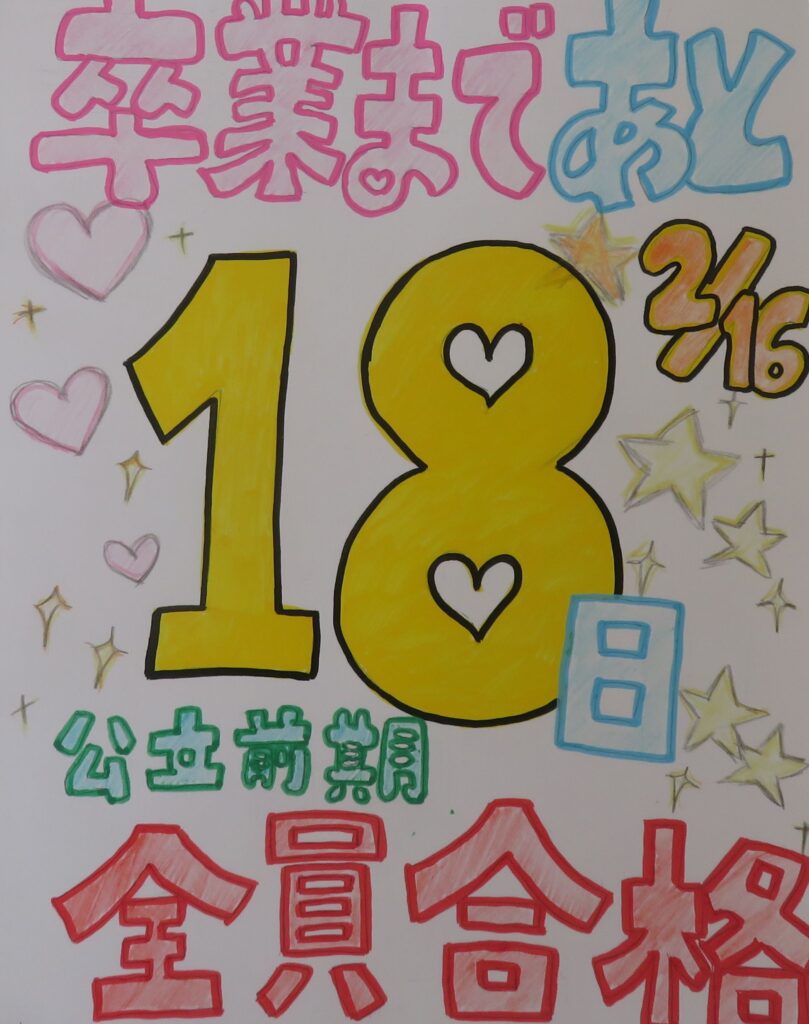 卒業まであと
2/16
18日
公立前期
全員合格